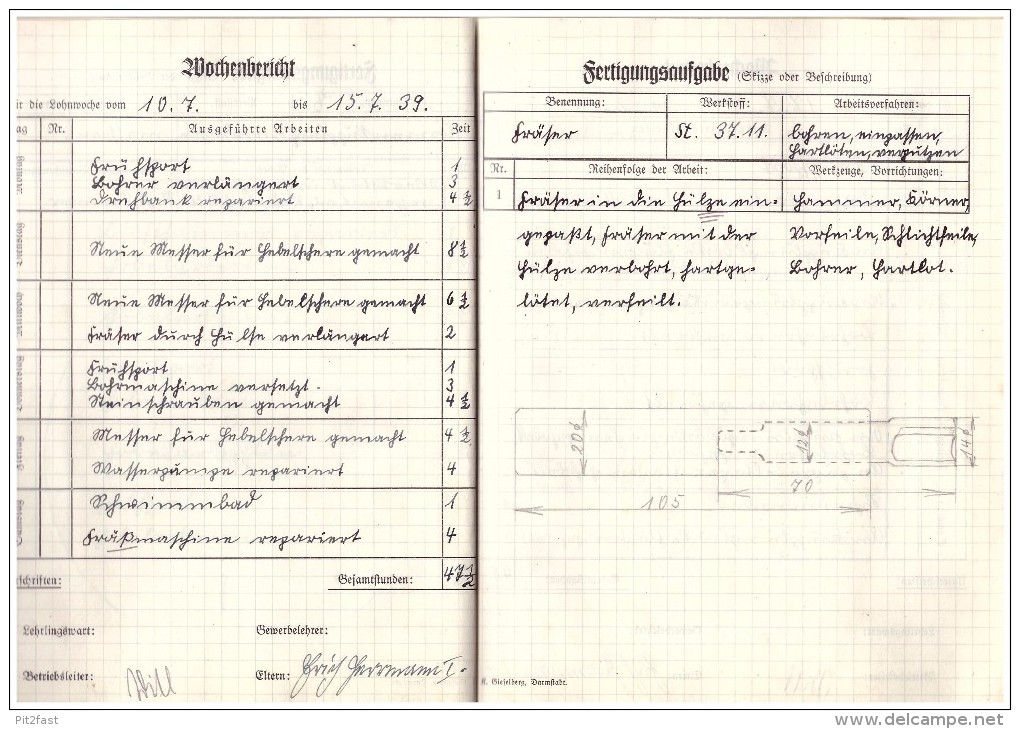 Wochenbericht
die Lohnwoche vom 10.7. bis 15.7.39.
Nr. Ausgeführte Arbeiten Zeit
Frühsport 1
Bohrer verlängert 3
Drehbank repariert 4 1/2
Neue Messer für Hebelschere gemacht 8 1/2
Neue Messer für Hebelschere gemacht 6 1/2
Fräser durch Hülse verlängert 2
Frühsport 1
Bohrmaschine versetzt. 3
Steinschrauben gemacht 4 1/2
Messer für Hebelschere gemacht 4 1/2
Wasserpumpe repariert 4
Schwimmbad 1
Fräßmaschine repariert 4
schriften: Gesamtstunden: 47 1/2
Lehrlingswart: Gewerbelehrer:
Betriebsleiter: Will Eltern: Erich Herrmann I.
Fertigungsaufgabe (Skizze oder Beschreibung)
Benennung: Werkstoff: Arbeitsverfahren:
Fräser St. 37.11. bohren, einpassen,
hartlöten, verputzen
Nr. Reihenfolge der Arbeit: Werkzeuge, Vorrichtungen:
1 Fräser in die Hülze ein- Hammer, Körner,
gepaßt, Fräser mit der Vorfeile, Schlichtfeile,
Hülze verbohrt, hartge- Bohrer, Hartlot.
lötet, verfeilt.
20ø
12ø
14ø
70
105
K. Gieselberg, Darmstadt.
Pit2fast
www.delcampe.net